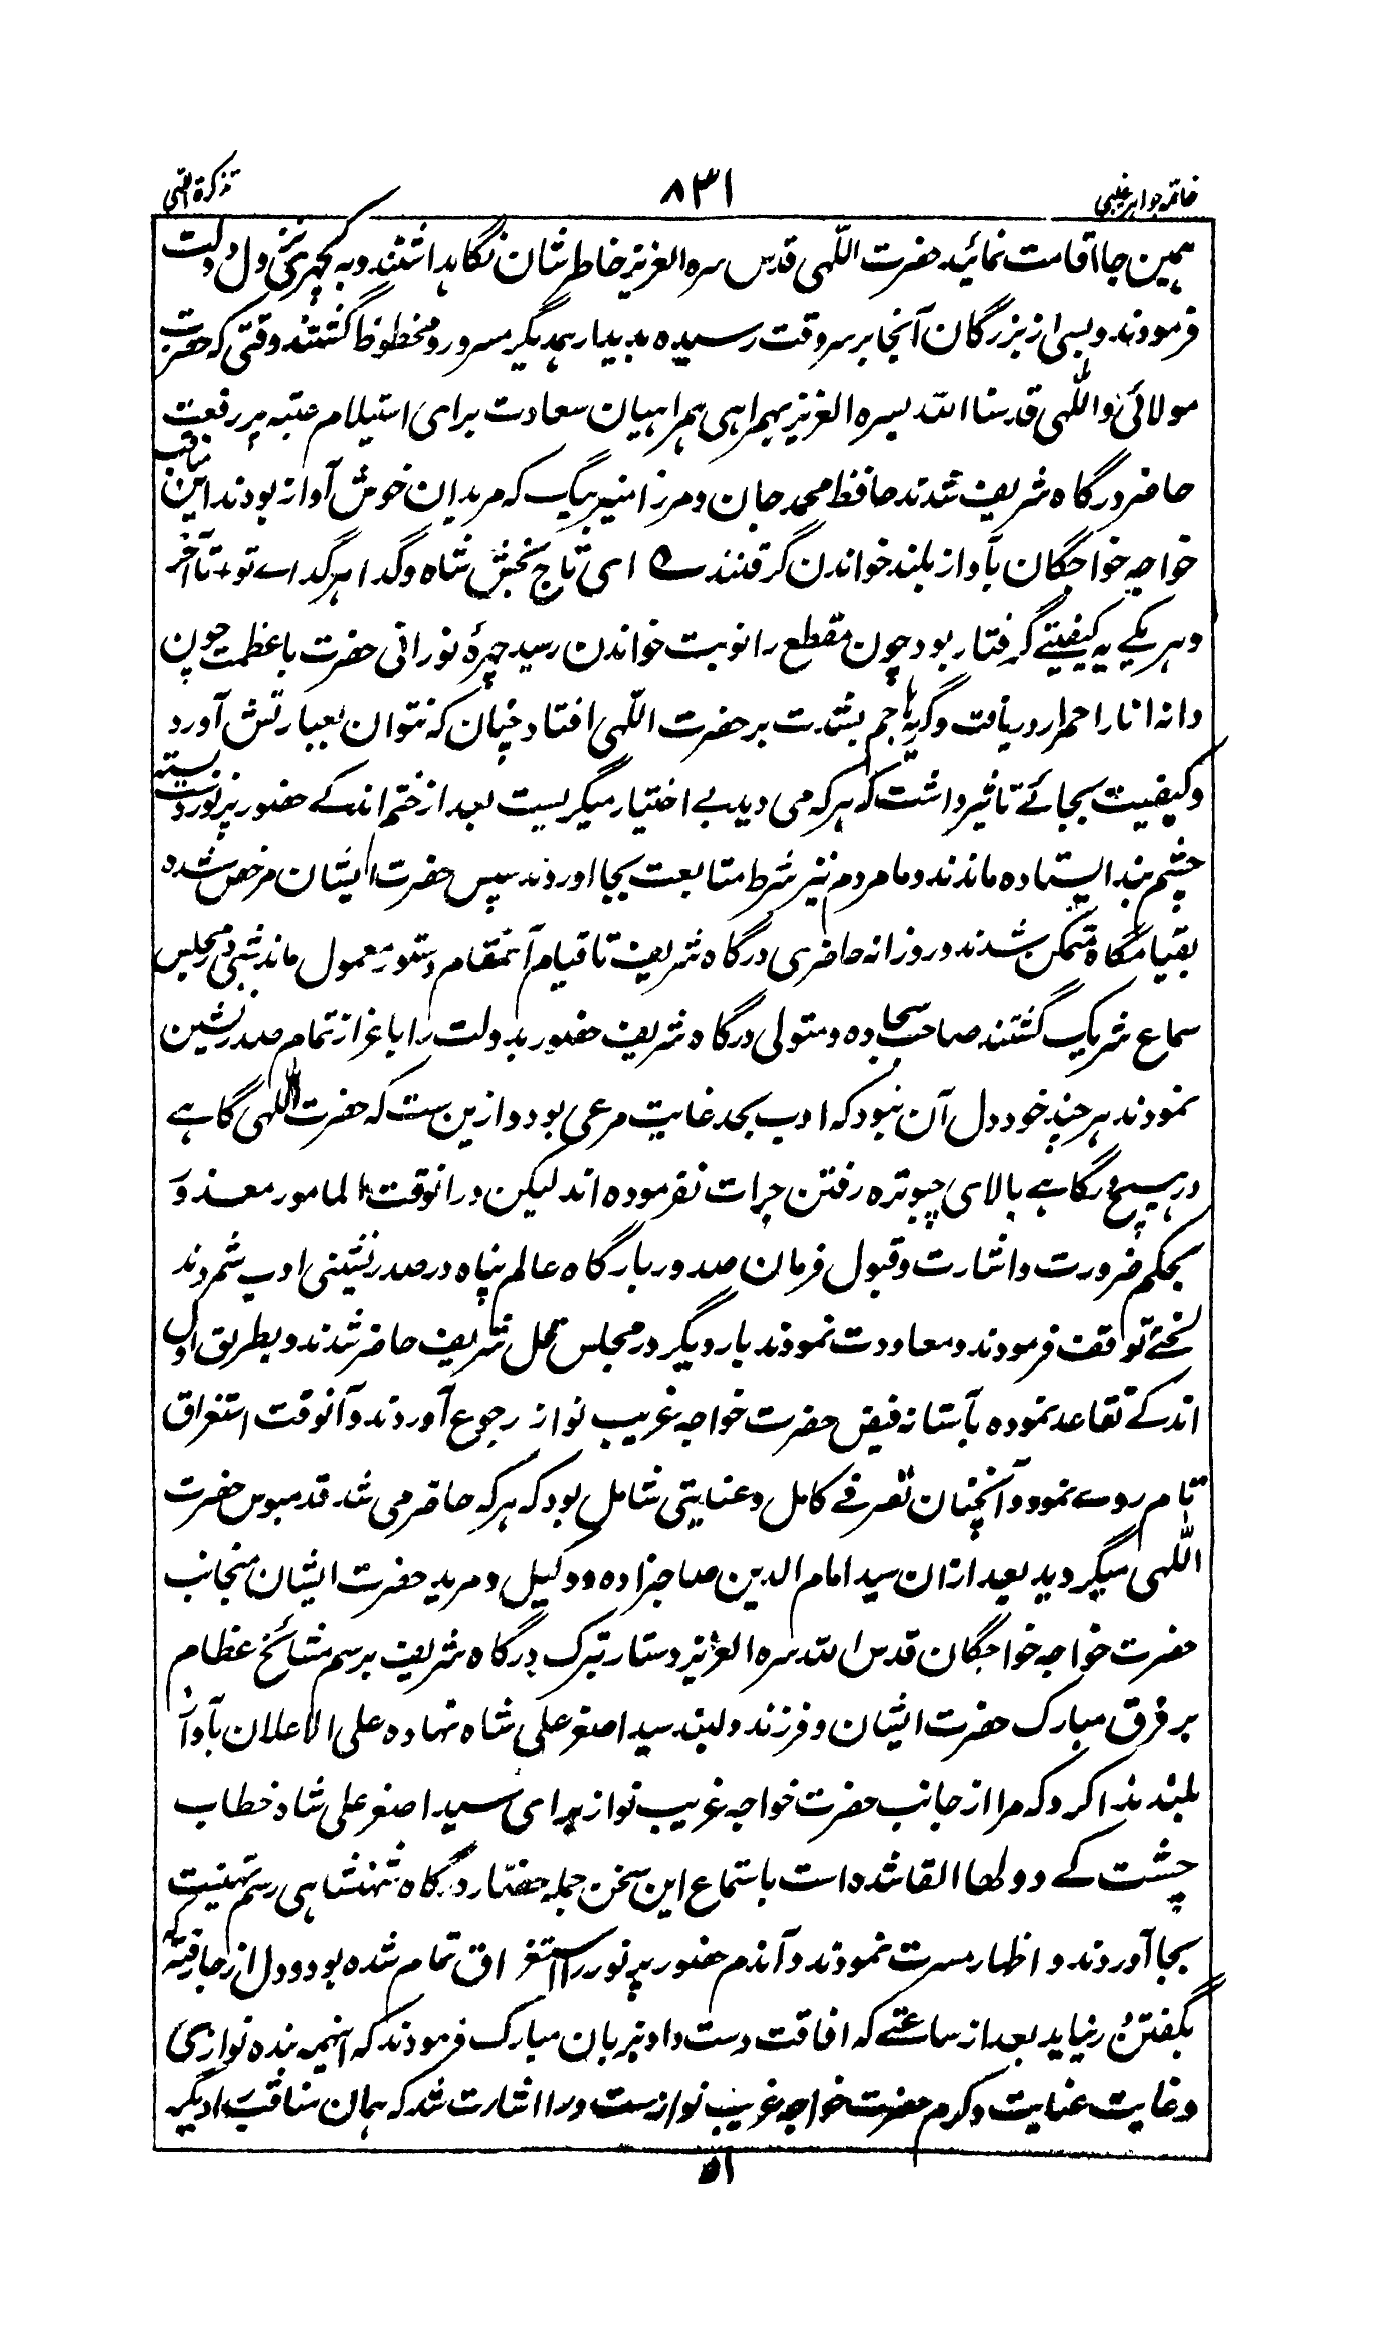 خاتمہ جواہر غیبی ۸۳۱ تذکرۃ اللّٰہی
ہمین جا اقامت نمائید حضرت اللّٰہی قدس سرہ العزیز خاطر شان نگاہداشتند و بہ کچہری نزول دولت
فرمودند و بسی از بزرگان آنجا بر سر وقت رسیدہ بدیدار ہمدیگر مسرور و محظوظ گشتند وقتی کہ حضرت
مولائی و اللّٰہی قدسنا اللہ بسرہ العزیز بہمراہی ہمراہیان سعادت برای استیلام عتبہ پر رفعت
حاضر درگاہ شریف شدند حافظ محمد جان و مرزا منیر بیگ کہ مریدان خوش آواز بودند این مناقب
خواجہ خواجگان بآواز بلند خواندن گرفتند ے ای تاج بخش شاہ و گدا ہر گداے تو + تا آخر
و ہر یکے بہ کیفیتے گرفتار بود چون مقطع را نوبت خواندن رسید چہرۂ نورانی حضرت با عظمت چون
دانہ انار احمرار دریافت و گریہا جم بشدت بر حضرت اللّٰہی افتاد چنان کہ نتوان بعبارتش آورد
و کیفیت بجائے تاثیر داشت کہ ہر کہ می دید بے اختیار میگریست بعد از ختم اندکے حضور پر نور دست بستہ
چشم بند ایستادہ ماندند و ما مردم نیز شرط متابعت بجا اوردند سپس حضرت ایشان مرخص شدہ
بقیامگاہ متمکن شدند و روزانہ حاضری درگاہ شریف تا قیام آنمقام دستور معمول ماند شبی در مجلس
سماع شریک گشتند صاحب سجادہ و متولی درگاہ شریف حضور بدولت را باعزاز تمام صدر نشین
نمودند ہر چند خود دل آن نبود کہ ادب بحد غایت مرعی بود و ازین ست کہ حضرت اللّٰہی گاہے
در ہیچ درگاہے بالای چبوترہ رفتن جرات نفرمودہ اند لیکن درانوقت المامور معذور
بحکم ضرورت و اشارت و قبول فرمان صدور بارگاہ عالم پناہ در صدر نشینی ادب شمردند
لختے توقف فرمودند و معاودت نمودند بار دیگر در مجلس محل شریف حاضر شدند و بطریق اول
اندکے تقاعد نمودہ بآستانہ فیض حضرت خواجہ غریب نواز رجوع آوردند و آنوقت استغراق
تام روے نمود و آنچنان تصرفے کامل و عنایتی شامل بود کہ ہر کہ حاضر می شد قدمبوس حضرت
اللّٰہی میگردید بعد ازان سید امام الدین صاحبزادہ و وکیل و مرید حضرت ایشان منجانب
حضرت خواجہ خواجگان قدس اللہ سرہ العزیز دستار تبرک درگاہ شریف برسم مشائخ عظام
بر فرق مبارک حضرت ایشان و فرزند دلبند سید اصغر علی شاہ نہادہ علی الاعلان بآواز
بلند ندا کرد کہ مرا از جانب حضرت خواجہ غریب نواز برای سید اصغر علی شاہ خطاب
چشت کے دولھا القا شدہ است باستماع این سخن جملہ حضار درگاہ شہنشاہی رسم تہنیت
بجا آوردند و اظہار مسرت نمودند و آندم حضور پر نور را استغراق تمام شدہ بود و دل از جا رفتہ کہ
بگفتن در نیاید بعد از ساعتے کہ افاقت دست داد بزبان مبارک فرمودند کہ اینہمہ بندہ نوازی
و غایت عنایت و کرم حضرت خواجہ غریب نواز ست و را اشارت شد کہ ہمان مناقب را دیگر
۵۱